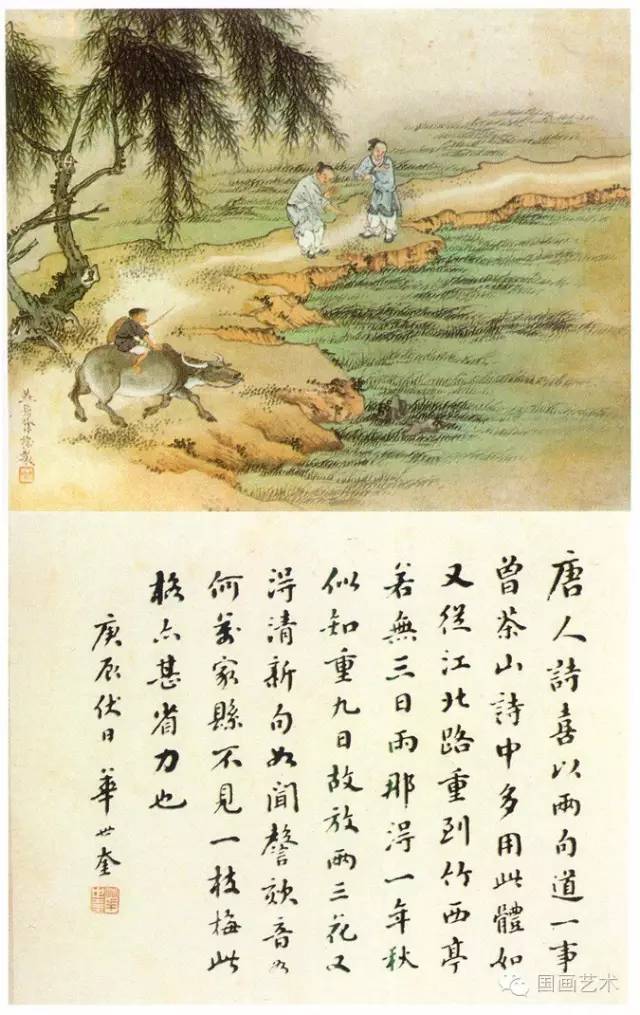 唐人詩喜以兩句道一事
曾茶山詩中多用此體如
又從江北路重到竹西亭
若無三日雨那得一年秋
似知重九日故放兩三花又
得清新句如聞謦欬音如
何萬家縣不見一枝梅此
格亦甚省力也
庚辰伏日 華世奎
国画艺术